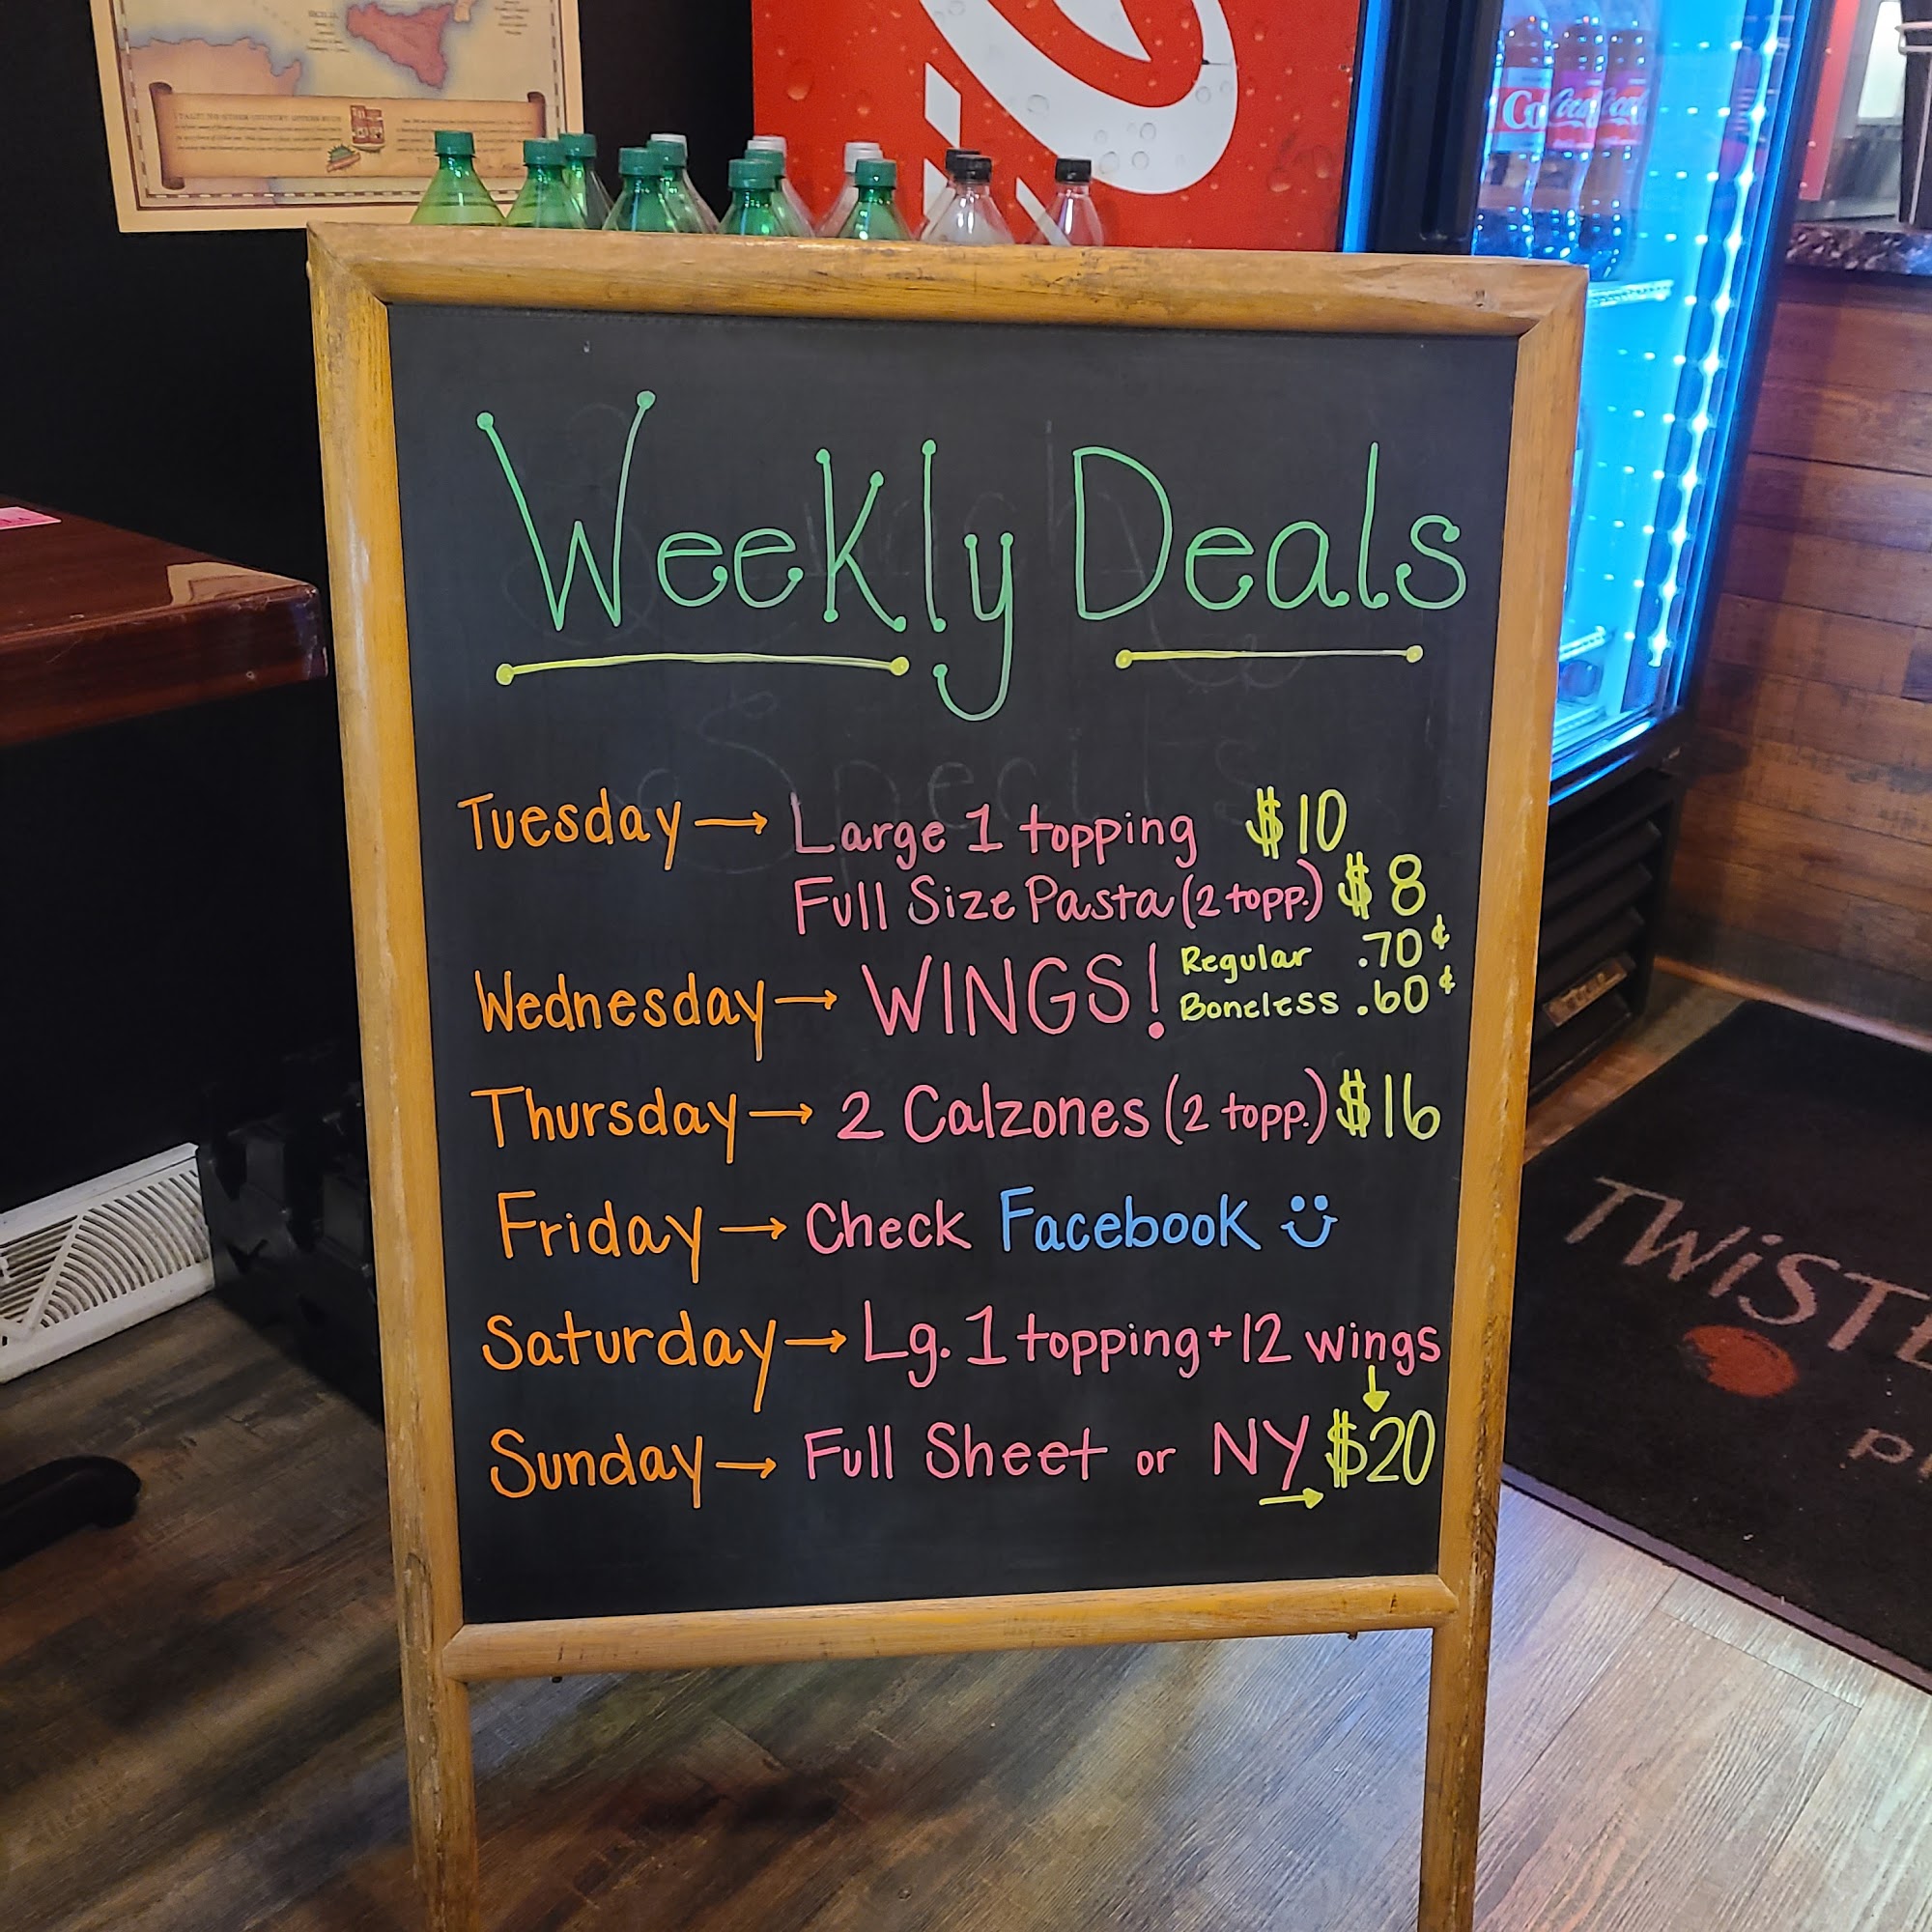 SICILIA
Coca Coca Coca
Weekly Deals
Tuesday → Large 1 topping $10
Full Size Pasta (2 topp.) $8
Wednesday → WINGS! Regular .70¢
Boneless .60¢
Thursday → 2 Calzones (2 topp.) $16
Friday → Check Facebook
Saturday → Lg. 1 topping + 12 wings
Sunday → Full Sheet or NY $20
TWiSTE